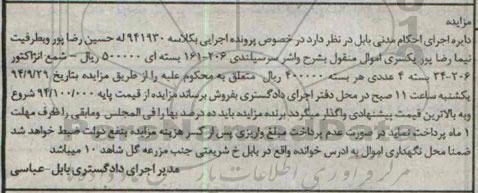 مزایده
دایره اجرای احکام مدنی بابل در نظر دارد در خصوص پرونده اجرایی بکلاسه ۹۴۱۹۳۰ له حسین رضا پور وبطرفیت
نیما رضا پور یکسری اموال منقول بشرح واشر سرسیلندی ۲۰۶-۱۶۱ بسته ای ۵۰۰۰۰۰ ریال - شمع انژاکتور
۲۰۶-۲۴ بسته ۴ عددی هر بسته ۴۰۰۰۰۰ ریال متعلق به محکوم علیه را از طریق مزایده بتاریخ ۹۴/۹/۲۹
یکشنبه ساعت ۱۱ صبح در محل دفتر اجرای دادگستری بفروش برساند مزایده از قیمت پایه ۹۴/۱۰۰/۰۰۰ شروع
وبه بالاترین قیمت پیشنهادی واگذار میگردد برنده مزایده باید ده درصد بها را فی المجلس ومابقی را ظرف مهلت
۱ ماه پرداخت نماید در صورت عدم پرداخت مبلغ واریزی پس از کسر هزینه مزایده بنفع دولت ضبط خواهد شد
ضمنا محل نگهداری اموال به ادرس خوانده واقع در بابل خ شریعتی جنب مزرعه گل شاهد ۱۰ میباشد
مدیر اجرای دادگستری بابل-عباسی